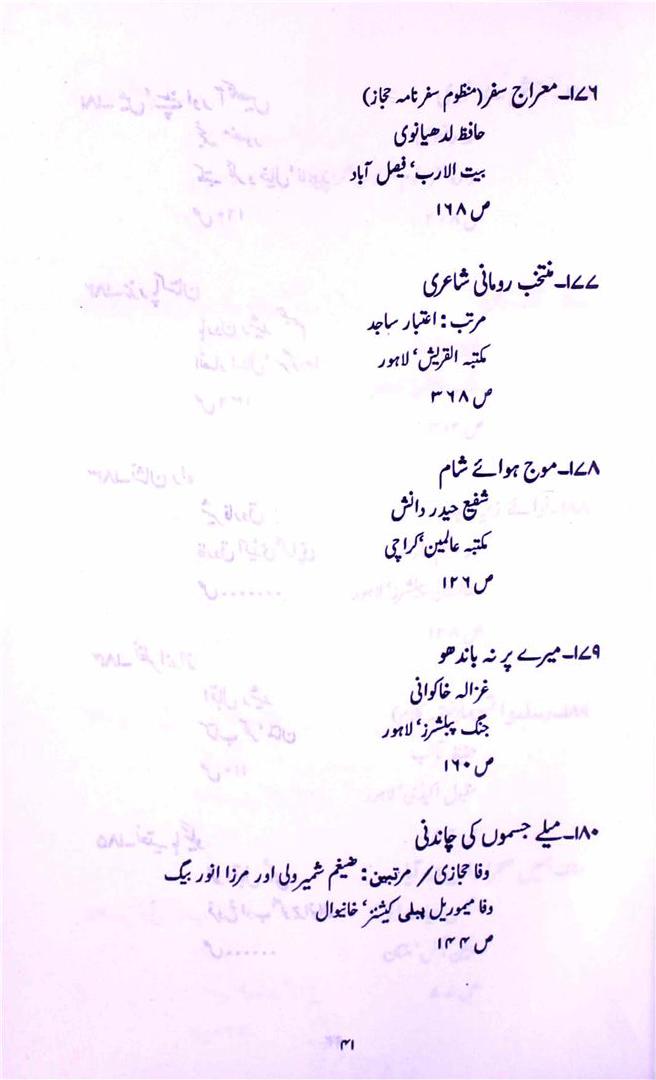 ۱۷۶۔ معراج سفر (منظوم سفر نامہ حجاز)
حافظ لدھیانوی
بیت الارب‘ فیصل آباد
ص ۱۶۸
۱۷۷۔ منتخب رومانی شاعری
مرتب : اعتبار ساجد
مکتبہ القریش‘ لاہور
ص ۳۶۸
۱۷۸۔ موج ہوائے شام
شفیع حیدر دانش
مکتبہ عالمین‘ کراچی
ص ۱۲۶
۱۷۹۔ میرے پر نہ باندھو
غزالہ خاکوانی
جنگ پبلشرز‘ لاہور
ص ۱۶۰
۱۸۰۔ میلے جسموں کی چاندنی
وفا حجازی / مرتبین : ضیغم شمیرولی اور مرزا انور بیگ
وفا میموریل پبلی کیشنز‘ خانیوال
ص ۱۴۴
۴۱